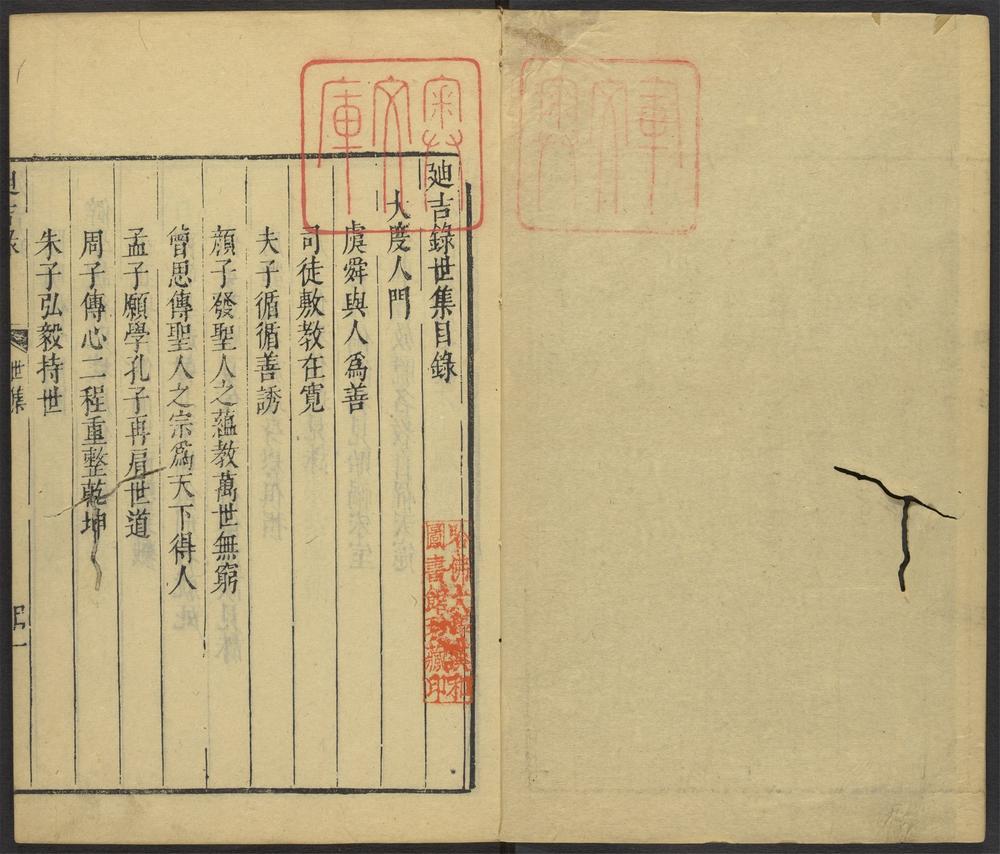 廸吉錄世集目錄
大度人門
虞舜與人爲善
司徒敷教在寛
夫子循循善誘
顏子發聖人之蘊教萬世無窮
曾思傳聖人之宗爲天下得人
孟子願學孔子再肩世道
周子傳心二程重整乾坤
朱子弘毅持世
世集
哈佛大學漢和
圖書館珍藏印